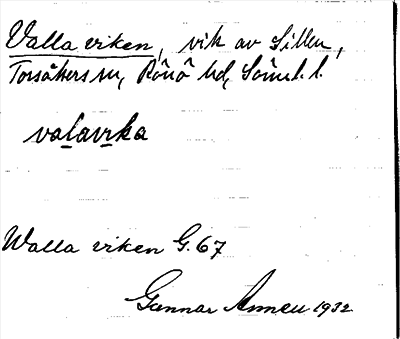 Valla viken, vik av Sillen,
Torsåkers sn, Rönö hd, Söml. l.
valavika
Walla viken G. 67
Gunnar 1932